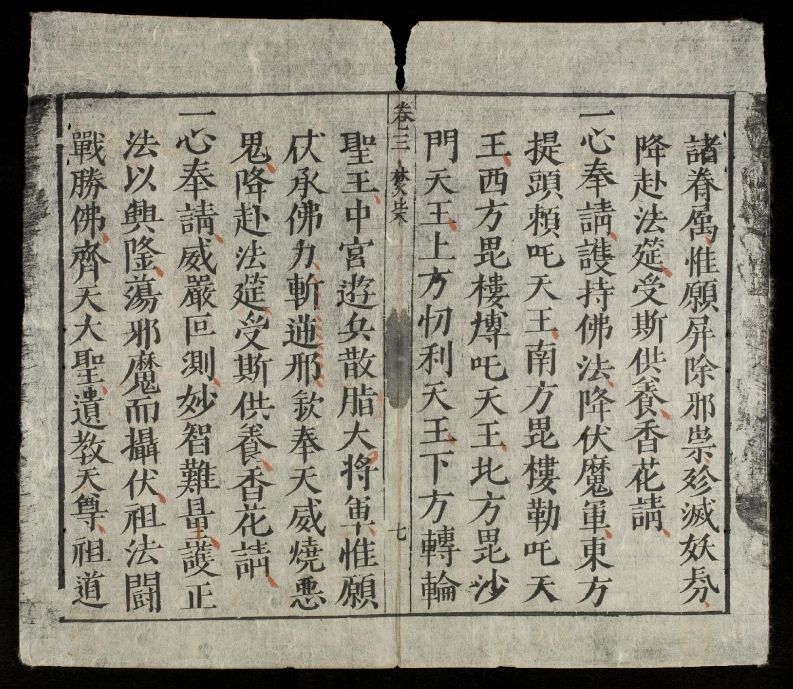 諸眷属惟願屏除邪祟殄滅妖氛
降赴法筵受斯供養香花請
一心奉請護持佛法降伏魔軍東方
提頭頼吒天王南方毘樓勒吒天
王西方毘樓博吒天王北方毘沙
門天王上方忉利天王下方轉輪
卷三 焚柴
七
聖王中宮遊兵散脂大将軍惟願
伏承佛力斬邪欽奉天威燒悪
鬼降赴法筵受斯供養香花請
一心奉請威嚴叵測妙智難量護正
法以興隆蕩邪魔而攝伏祖法闘
戰勝佛齊天大聖遺教天尊祖道